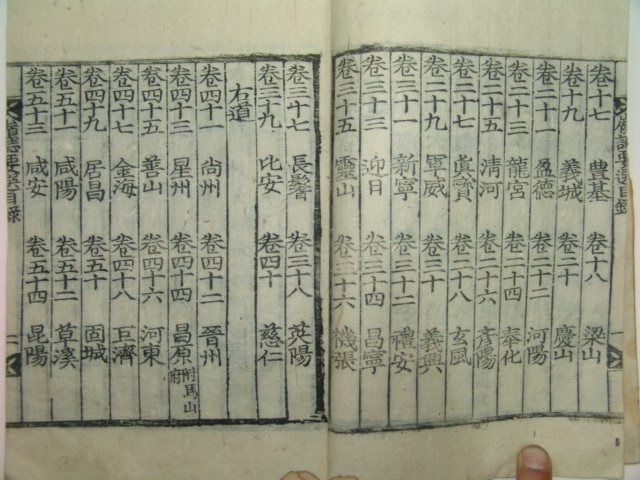 嶺誌要選目錄 一
卷十七 豊基 卷十八 梁山
卷十九 義城 卷二十 慶山
卷二十一 盈德 卷二十二 河陽
卷二十三 龍宮 卷二十四 奉化
卷二十五 淸河 卷二十六 彦陽
卷二十七 眞寳 卷二十八 玄風
卷二十九 軍威 卷三十 義興
卷三十一 新寧 卷三十二 禮安
卷三十三 迎日 卷三十四 昌寧
卷三十五 靈山 卷三十六 機張
卷三十七 長鬐 卷三十八 英陽
卷三十九 比安 卷四十 慈仁
右道
卷四十一 尙州 卷四十二 晉州
卷四十三 星州 卷四十四 昌原 附馬山府
卷四十五 善山 卷四十六 河東
卷四十七 金海 卷四十八 巨濟
卷四十九 居昌 卷五十 固城
卷五十一 咸陽 卷五十二 草溪
卷五十三 咸安 卷五十四 昆陽
嶺誌要選目錄 二